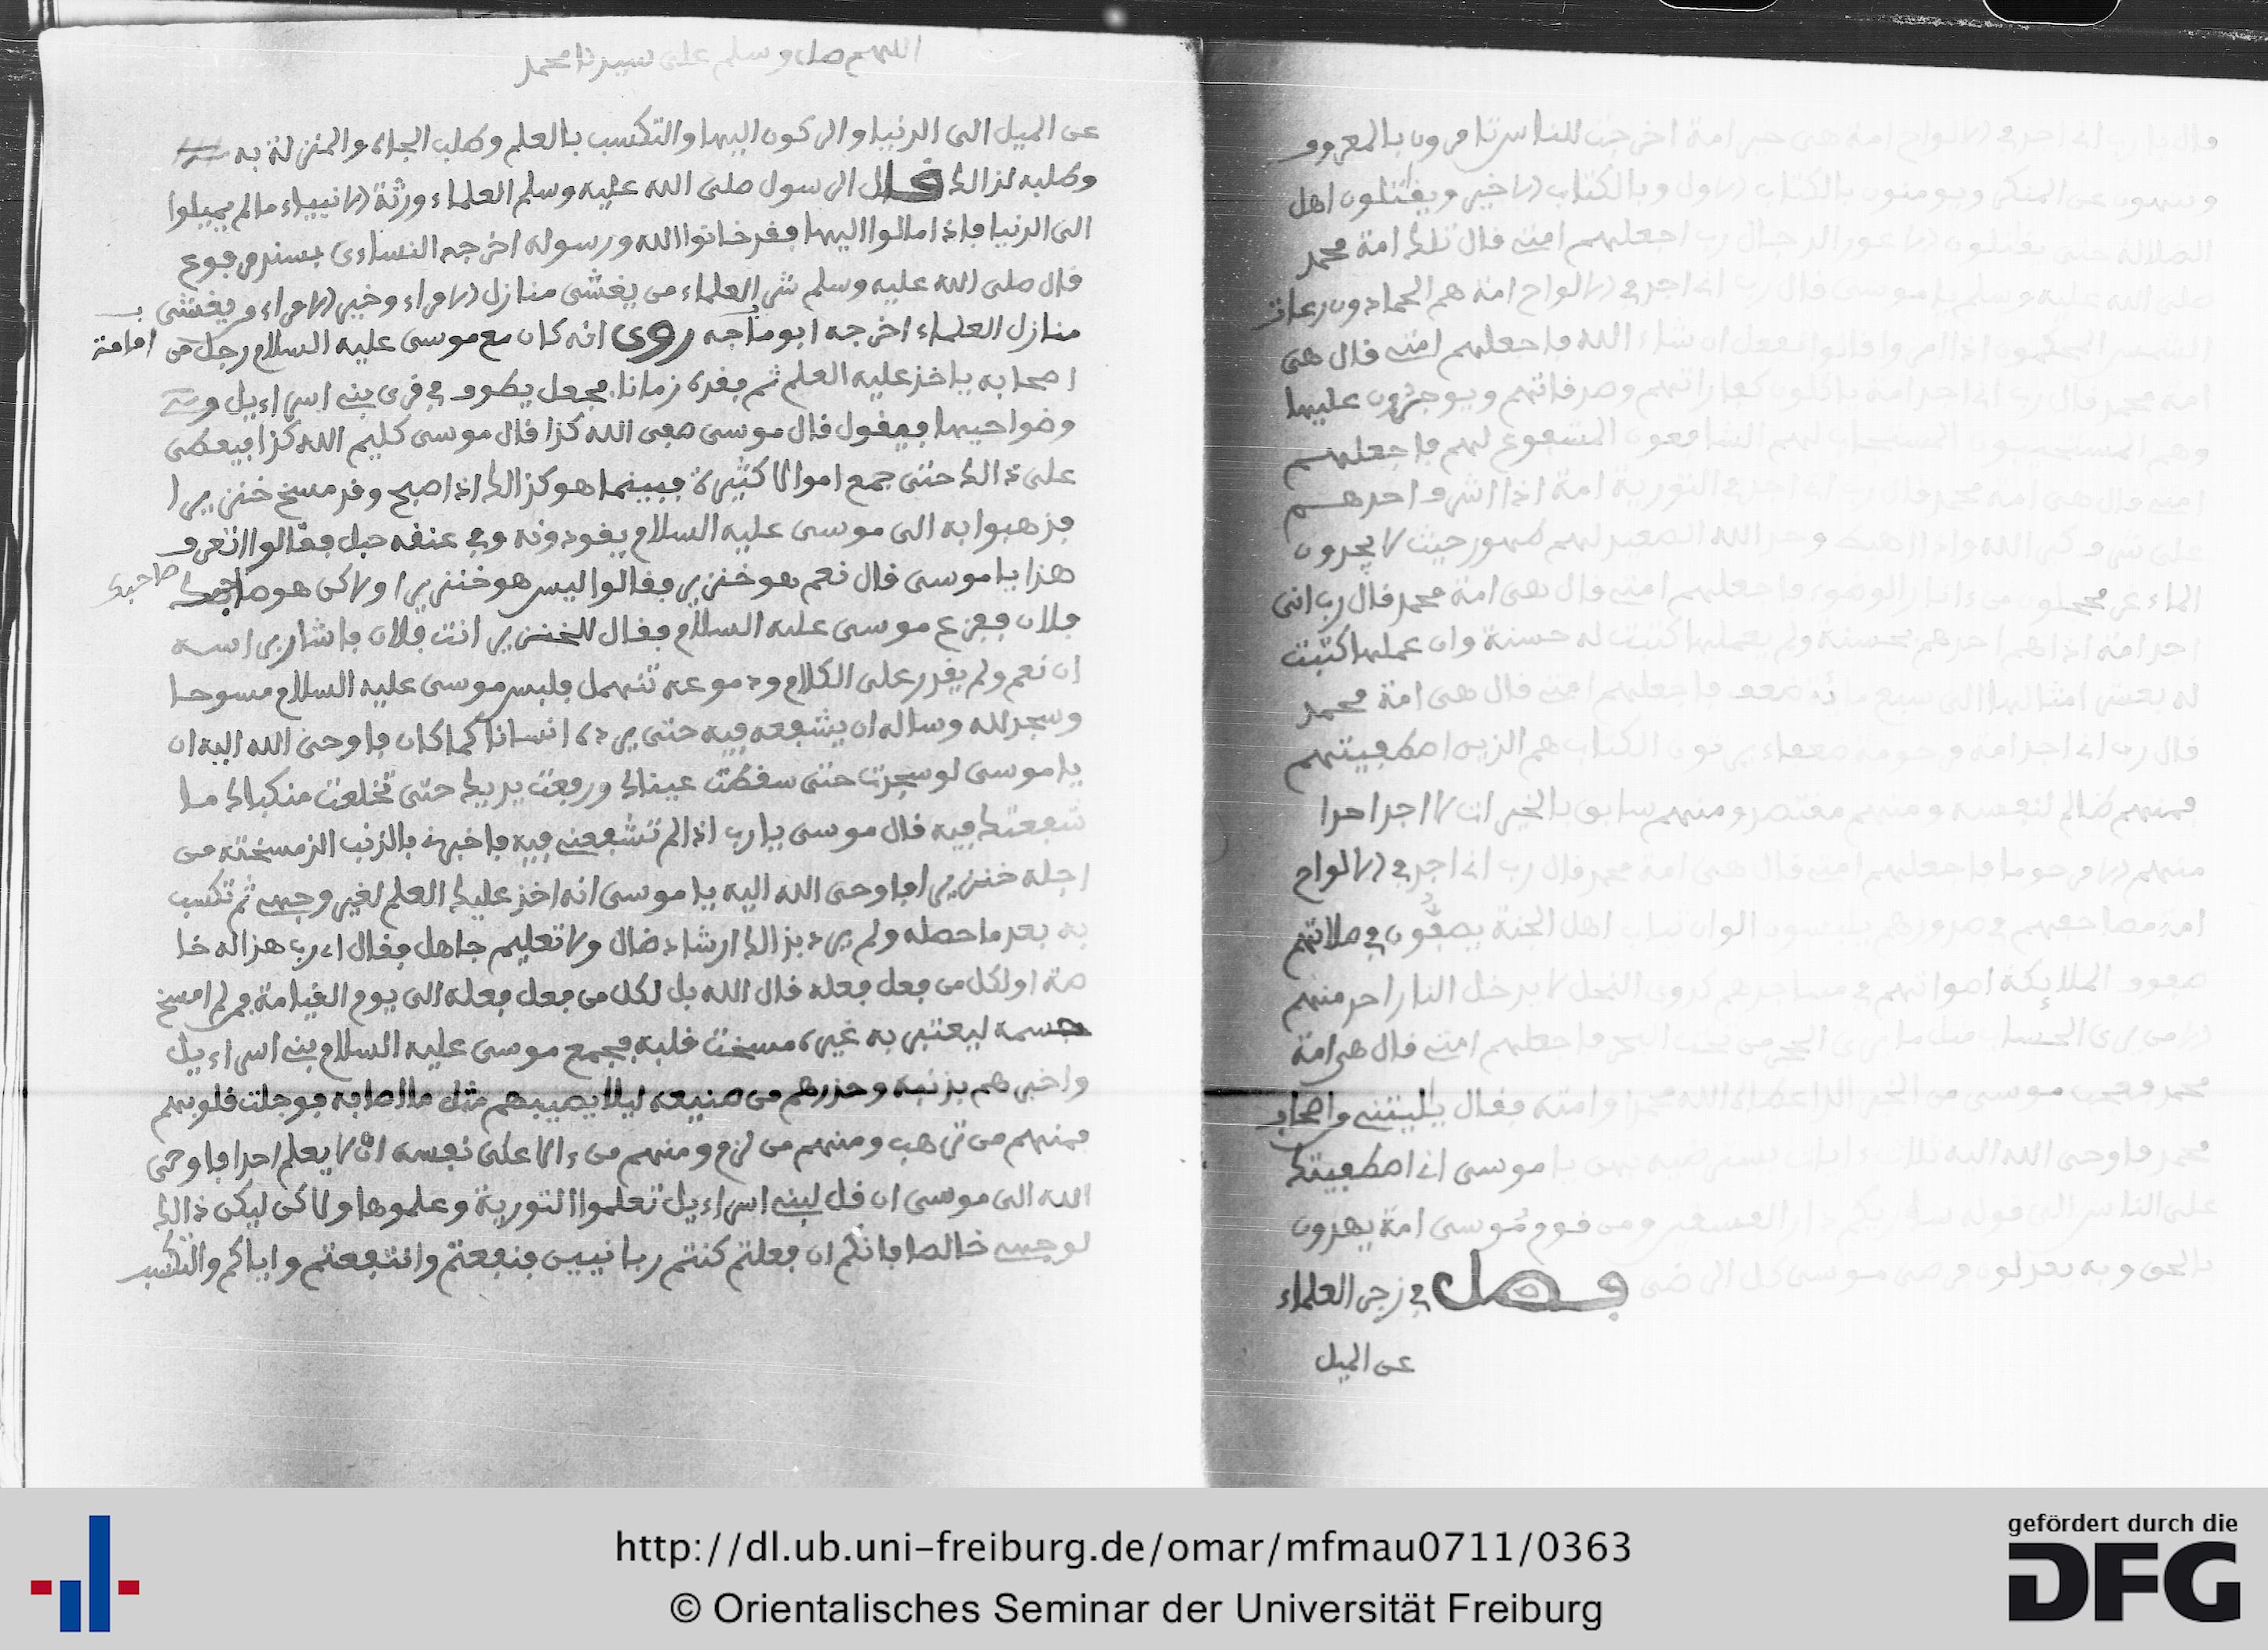 قال يا رب انى اجد في الالواح امة هي خير امة اخرجت للناس تامرون بالمعروف
وينهون عن المنكر ويومنون بالكتاب الاول وبالكتاب الاخير ويقتلون اهل
الضلالة حتى يقتلون الاعور الدجال رب اجعلهم امتي قال تلك امة محمد
صلى الله عليه وسلم يا موسى قال رب انى اجد في الالواح امة هم الحمادون رعات
الشمس المحكمون اذا امر وا قالوا نفعل ان شاء الله فاجعلهم امتي قال هي
امة محمد قال رب انى اجد امة ياكلون كفاراتهم وصدقاتهم ويوجرون عليها
وهم المستجاب لهم الشافعون المشفوع لهم فاجعلهم
امتي قال هي امة محمد قال رب انى اجد في التورية امة اذا اشرف احدهم
على شرف كبر الله واذا هبط وحد الله الصعيد لهم طهور حيث لا يجدون
الماء غر محجلون من ءاثار الوضوء فاجعلهم امتي قال هي امة محمد قال رب اني
اجد امة اذا هم احدهم بحسنة ولم يعملها كتبت له حسنة وان عملها كتبت
له بعشر امثالها الى سبع مائة ضعف فاجعلهم امتي قال هي امة محمد
قال رب انى اجد امة مرحومة ضعفاء يرثون الكتاب هم الذين اصطفيتهم
فمنهم ظالم لنفسه ومنهم مقتصد ومنهم سابق بالخيرات لا اجد احدا
منهم الا مرحوما فاجعلهم امتي قال هي امة محمد قال رب انى اجد في الالواح
امة مصاحفهم في صدورهم يلبسون الوان ثياب اهل الجنة يصفون في صلاتهم
صفوف الملايكة اصواتهم في مساجدهم كدوي النحل لا يدخل النار احد منهم
الا من يرى الحساب مثل ما يرى الحجر من تحت البحر فاجعلهم امتي قال هي امة
محمد فعجب موسى من الخير الذي اعطاه الله محمدا وامته فقال يليتني من اصحاب
محمد فاوحى الله اليه ثلاث ءايات يرضيه بهن يا موسى اني اصطفيتك
على الناس الى قوله ساريكم دار الفسقين ومن قوم موسى امة يهدون
بالحق وبه يعدلون فرضي موسى كل الرضى فصل في زجر العلماء
عن الميل
اللهم صل وسلم على سيدنا محمد
عن الميل الى الدنيا والركون اليها والتكسب بالعلم وطلب الجاه والمنزلة به
وطلبه لذالك قال الرسول صلى الله عليه وسلم العلماء ورثة الانبياء ما لم يميلوا
الى الدنيا فاذا مالوا اليها فقد خانوا الله ورسوله اخرجه النساءى بسند مرفوع
قال صلى الله عليه وسلم شر العلماء من يغشى منازل الامراء وخير الامراء من يغشى
منازل العلماء اخرجه ابو ماجه روى انه كان مع موسى عليه السلام رجل من
اصحابه ياخذ عليه العلم ثم فقده زمانا فجعل يطوف في قرى بني اسراءيل
وضواحيها فيقول قال موسى صفي الله كذا قال موسى كليم الله كذا فيعطى
على ذالك حتى جمع اموالا كثيرة فبينما هو كذالك اذ اصبح وقد مسخ خنزيرا
فذهبوا به الى موسى عليه السلام يقودونه وفي عنقه حبل فقالوا اتعرف
هذا يا موسى قال نعم هو خنزير فقالوا ليس هو خنزيرا ولاكن هو صاحبك
فلان ففزع موسى عليه السلام فقال للخنزير انت فلان فاشار براسه
ان نعم ولم يقدر على الكلام ودموعه تنهمل فلبس موسى عليه السلام مسوحا
وسجد لله وساله ان يشفعه فيه حتى يرده انسانا كما كان فاوحى الله اليه ان
يا موسى لو سجدت حتى سقطت عيناك ورفعت يديك حتى تخلعت منكباك ما
شفعتك فيه قال موسى يا رب اذ لم تشفعني فيه فاخبرني بالذنب الذ مسخته من
اجله خنزيرا فاوحى الله اليه يا موسى انه اخذ عليك العلم لغير وجهي ثم تكسب
به بعد ما حصله ولم يرد بذالك ارشاد ضال ولا تعليم جاهل فقال اى رب هذا له خا
صة او لكل من فعل فعله قال الله بل لكل من فعل فعله الى يوم القيامة فمن لم امسخ
جسمه ليعتبر به غيره مسخت قلبه فجمع موسى عليه السلام بني اسراءيل
واخبرهم بذنبه وحذرهم من صنيعه ليلا يصيبهم مثل ما اصابه فوجلت قلوبهم
فمنهم من ترهب ومنهم من لزم ومنهم من ءالا على نفسه ان لا يعلم احدا فاوحى
الله الى موسى ان قل لبني اسراءيل تعلموا التورية وعلموها ولاكن ليكن ذالك
لوجهي خالصا فانكم ان فعلتم كنتم ربانيين فنفعتم وانتفعتم واياكم والتكسب
http://dl.ub.uni-freiburg.de/omar/mfmau0711/0363
© Orientalisches Seminar der Universität Freiburg
gefördert durch die
DFG